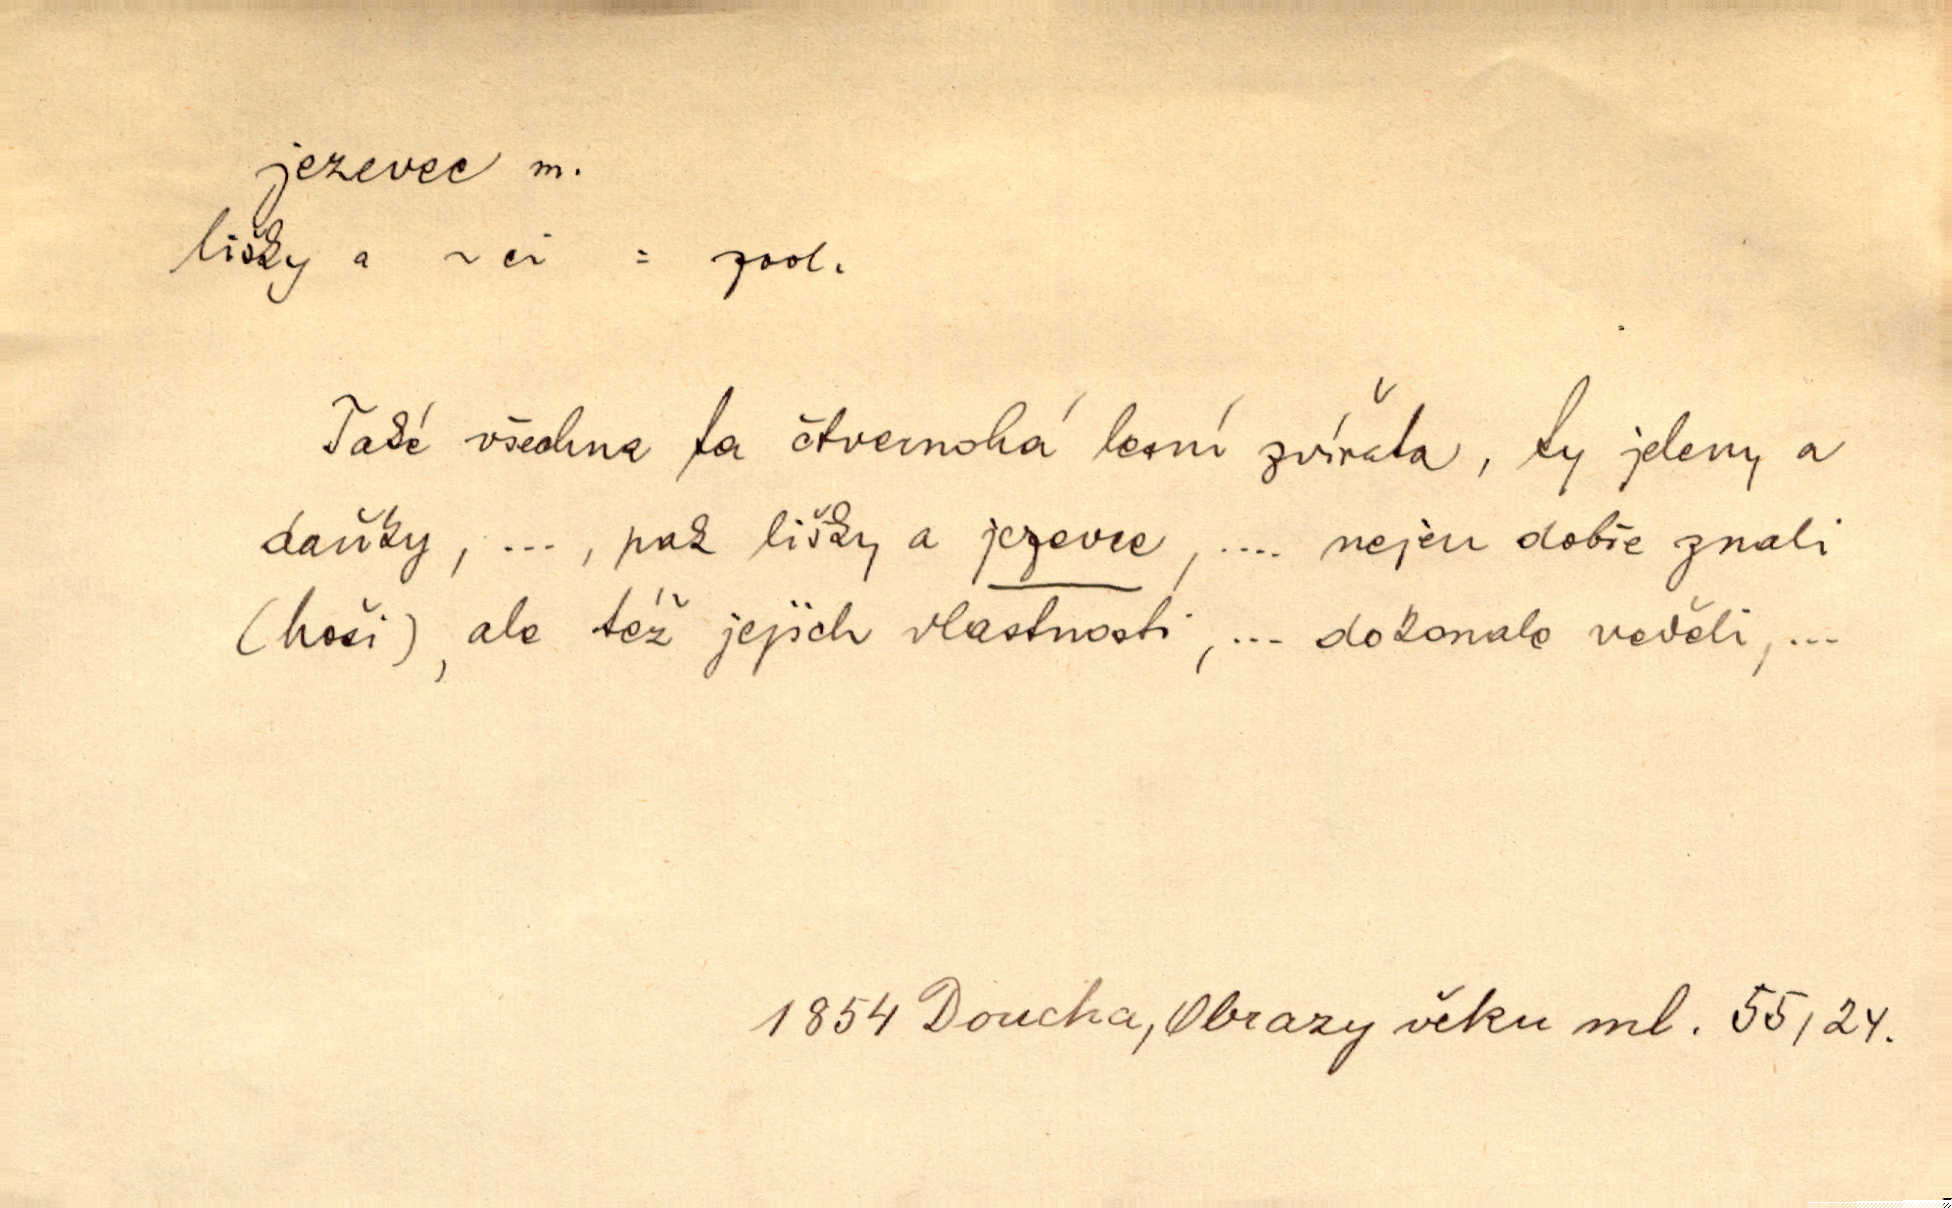 jezevec m.
lišky a ~ ci = zool.
Také všechna ta čtvernohá lesní zvířata, ty jeleny a
daňky, ..., pak lišky a jezevce, .... nejen dobře znali
(hoši), ale též jejich vlastnosti, ... dokonale věděli, ...
1854 Doucha, Obrazy věku ml. 55, 24.